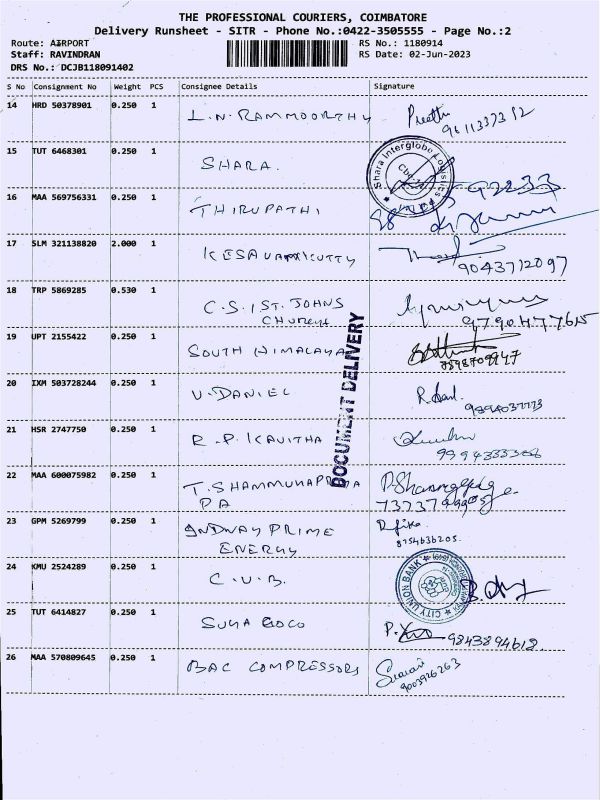 THE PROFESSIONAL COURIERS, COIMBATORE
Delivery Runsheet - SITR - Phone No.:0422-3505555 - Page No.:2
Route: AIRPORT
RS No.: 1180914
Staff: RAVINDRAN
RS Date: 02-Jun-2023
DRS No.: DCJB118091402
S No Consignment No Weight PCS Consignee Details Signature
14 HRD 50378901 0.250 1 L.N. RAMMOORTHY Preethi
15 TUT 6468301 0.250 1 SHARA.
Shara Interglobe Logistics
16 MAA 569756331 0.250 1 THIRUPATHI
17 SLM 321138820 2.000 1
9043712097
18 TRP 5869285 0.530 1 C.S.I ST. JOHNS
CHURCH
9790477615
19 UPT 2155422 0.250 1 SOUTH HIMALAYA
DOCUMENT DELIVERY
20 IXM 503728244 0.250 1 V. DANIEL
21 HSR 2747750 0.250 1 R.P. KAVITHA
22 MAA 600075982 0.250 1 T. SHAMMUKAPRIYA
PA
23 GPM 5269799 0.250 1 INDWAY PRIME
ENERGY
8754636205
24 KMU 2524289 0.250 1 C.U.B.
CITY UNION BANK
25 TUT 6414827 0.250 1 SUGA LOGO
9843894612
26 MAA 570809645 0.250 1 BAC COMPRESSORS
9003926263